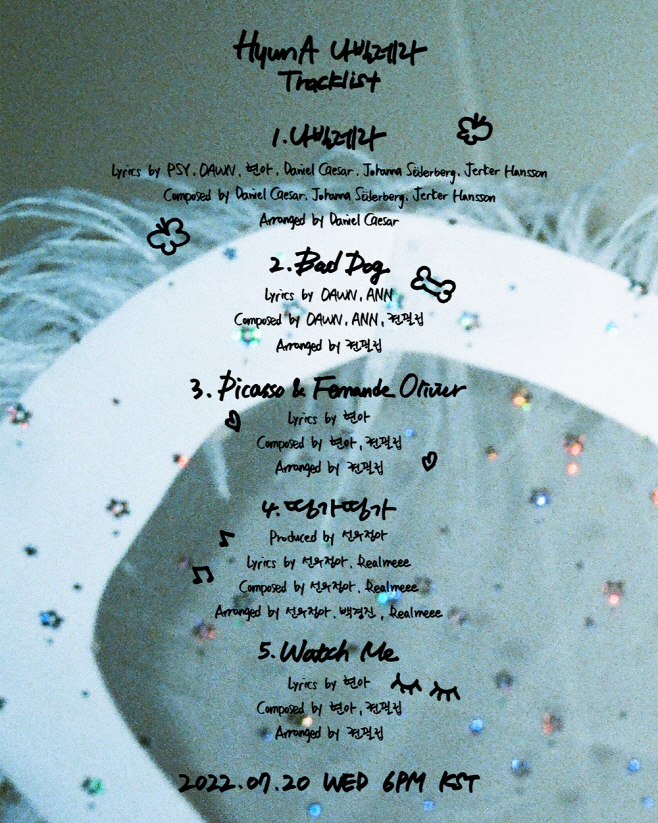 HyunA 나빌레라
Tracklist
1. 나빌레라
Lyrics by PSY, DAWN, 현아, Daniel Caesar, Johanna Söderberg, Jerker Hansson
Composed by Daniel Caesar, Johanna Söderberg, Jerker Hansson
Arranged by Daniel Caesar
2. Bad Dog
Lyrics by DAWN, ANN
Composed by DAWN, ANN, 전필립
Arranged by 전필립
3. Picasso & Fernande Olivier
Lyrics by 현아
Composed by 현아, 전필립
Arranged by 전필립
4. 띵가띵가
Produced by 선우정아
Lyrics by 선우정아, Realmeee
Composed by 선우정아, Realmeee
Arranged by 선우정아, 백경진, Realmeee
5. Watch Me
Lyrics by 현아
Composed by 현아, 전필립
Arranged by 전필립
2022.07.20 WED 6PM KST